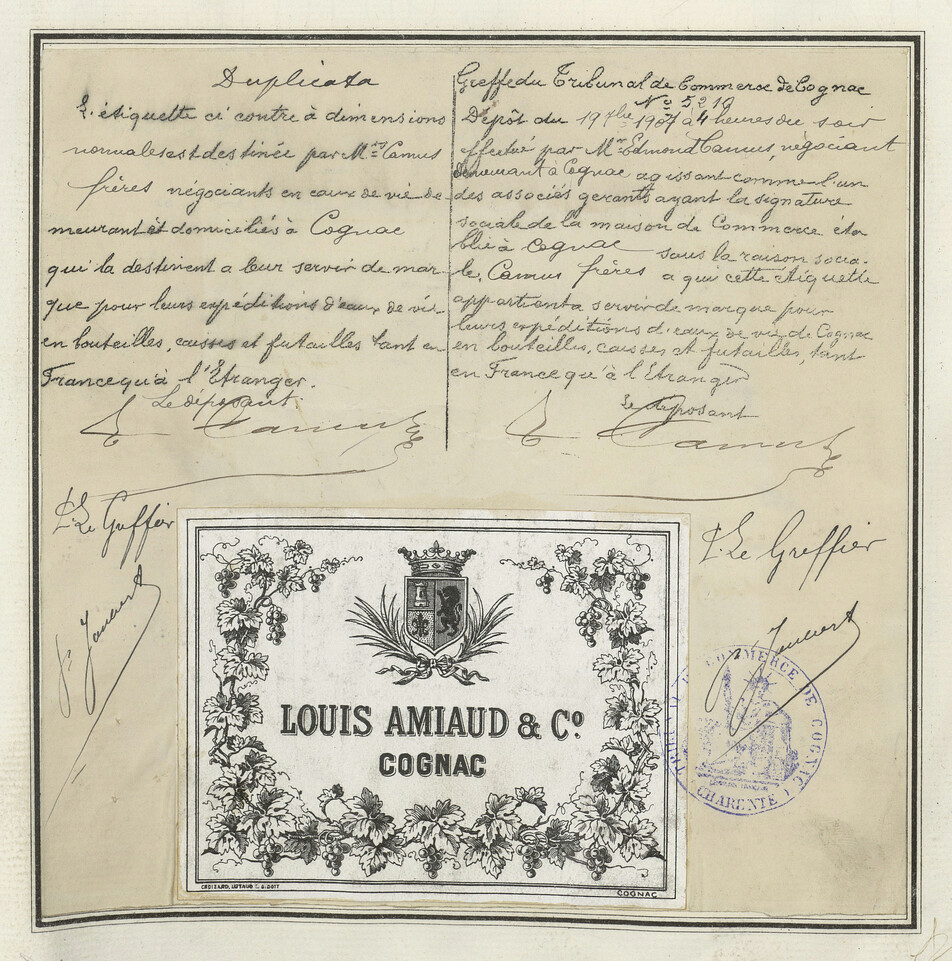 Duplicata
L'étiquette ci contre à dimensions
normales est destinée par Mrs Camus
frères négociants en eaux de vie de
meurant et domiciliés à Cognac
qui la destinent a leur servir de mar-
que pour leurs expéditions d'eaux de vie
en bouteilles, caisses et futailles tant en
France qu'à l'Etranger.
Le déposant.
E Camus
P. Le Greffier
Greffe du Tribunal de Commerce de Cognac
No 5,210
Dépôt du 19 1907 à 4 heures du soir
effectué par Mr Edmond Camus, négociant
demeurant à Cognac agissant comme l'un
des associés gerants ayant la signature
sociale de la maison de Commerce éta
blie à Cognac sous la raison socia-
le, Camus frères a qui cette étiquette
appartient a servir de marque pour
leurs expéditions d'eaux de vie de Cognac
en bouteilles, caisses et futailles, tant
en France qu'à l'Etranger
Le déposant
E Camus
P. Le Greffier
LOUIS AMIAUD & Co
COGNAC
COGNAC
COMMERCE DE COGNAC
(CHARENTE)